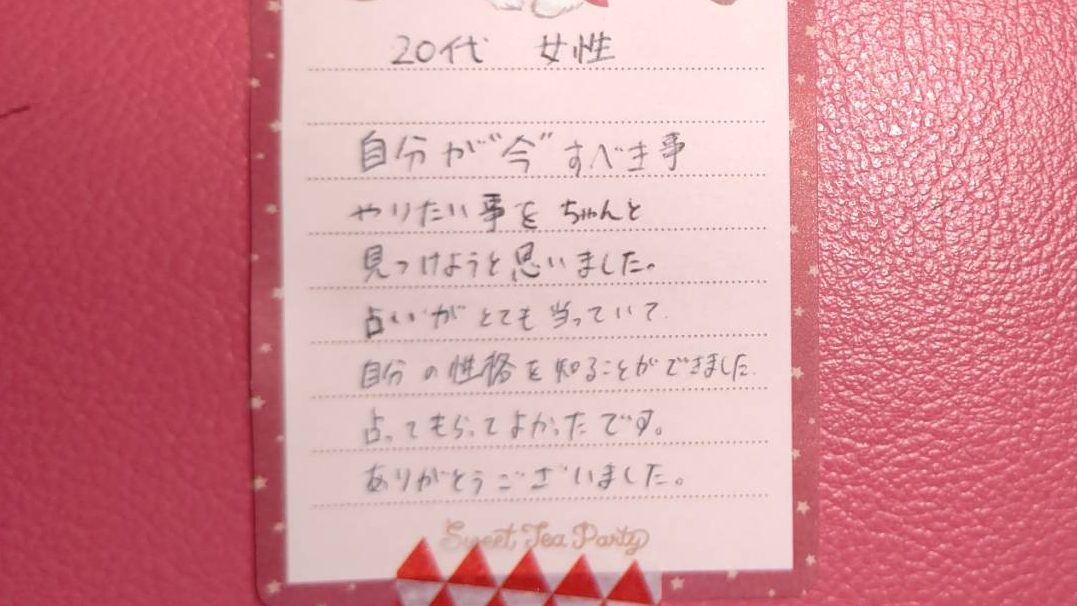 20代 女性
自分が今すべき事
やりたい事をちゃんと
見つけようと思いました。
占いがとても当っていて
自分の性格を知ることができました
占ってもらってよかったです。
ありがとうございました。
Sweet Tea Party